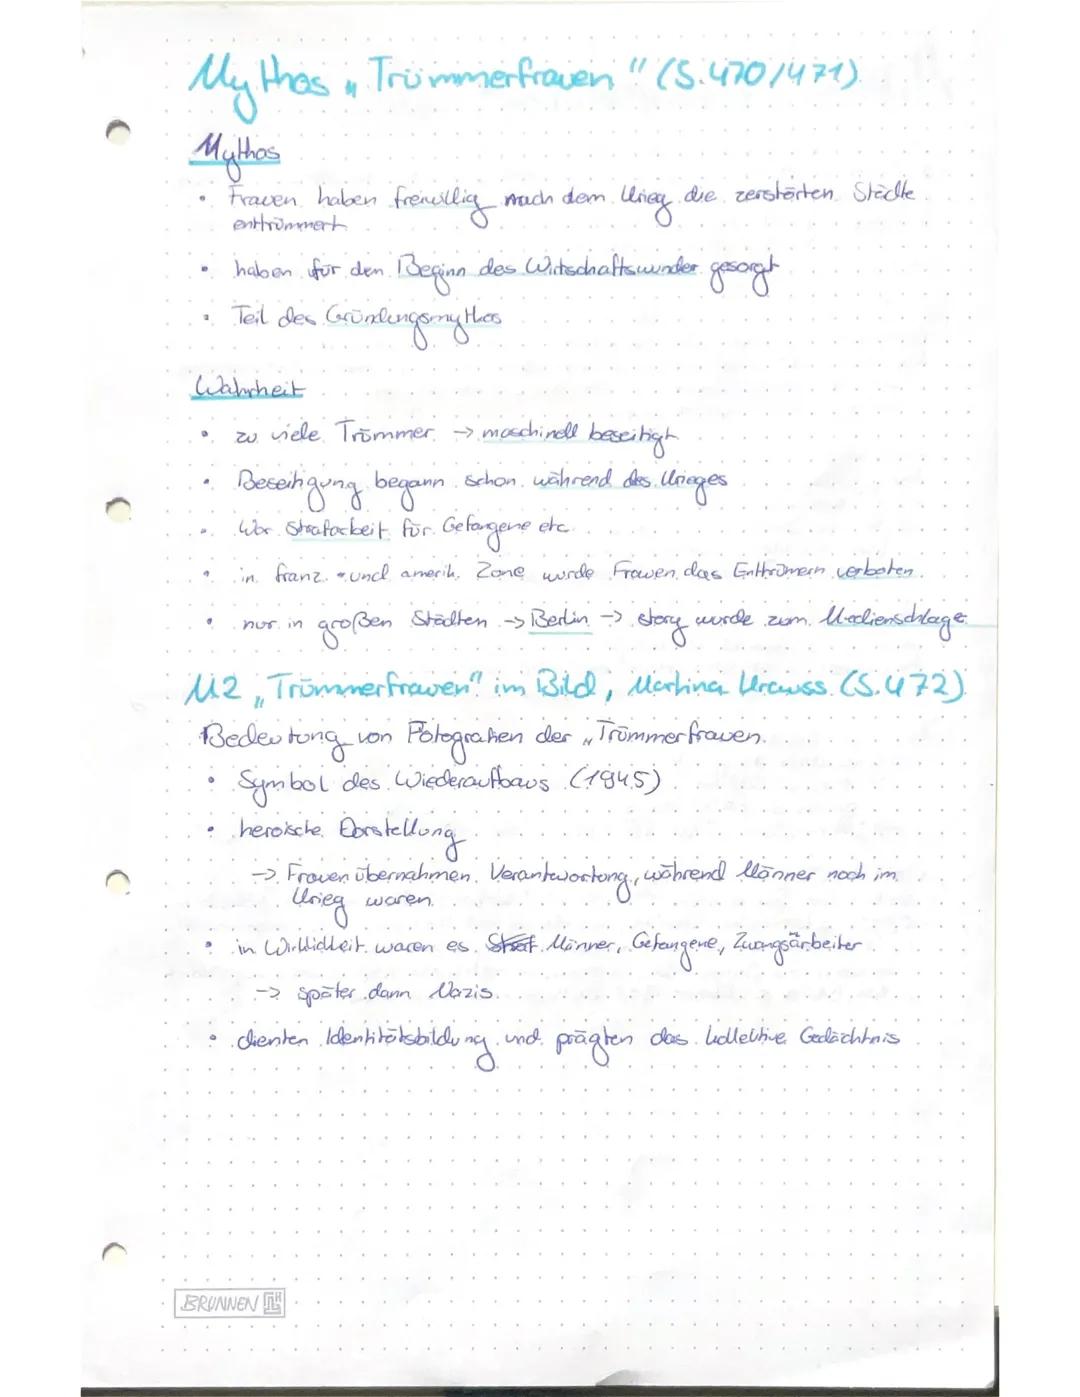 Mythos „Trümmerfrauen" (S.470/471)
Mythos
• Frauen haben freiwillig nach dem Krieg die zerstörten Städte
enttrümmert
• haben für den Beginn des Wirtschaftswunder gesorgt
• Teil des Gründungsmythos
Wahrheit
• zu viele Trümmer → maschinell beseitigt
• Beseitigung begann schon während des Krieges
• War Strafarbeit für Gefangene etc.
• in franz. und amerik. Zone wurde Frauen das Enttrümern verboten
• nur in großen Städten → Berlin → story wurde zum Medienschlager
M2 „Trümmerfrauen" im Bild, Martina Krauss (S.472)
Bedeutung von Fotografien der „Trümmerfrauen.
• Symbol des Wiederaufbaus (1945)
• heroische Darstellung
→ Frauen übernahmen Verantwortung, während Männer noch im
Krieg waren
• in Wirklichkeit waren es Männer, Gefangene, Zwangsarbeiter
→ später dann Nazis
• dienten Identitätsbildung und prägten das kollektive Gedächtnis
BRUNNEN